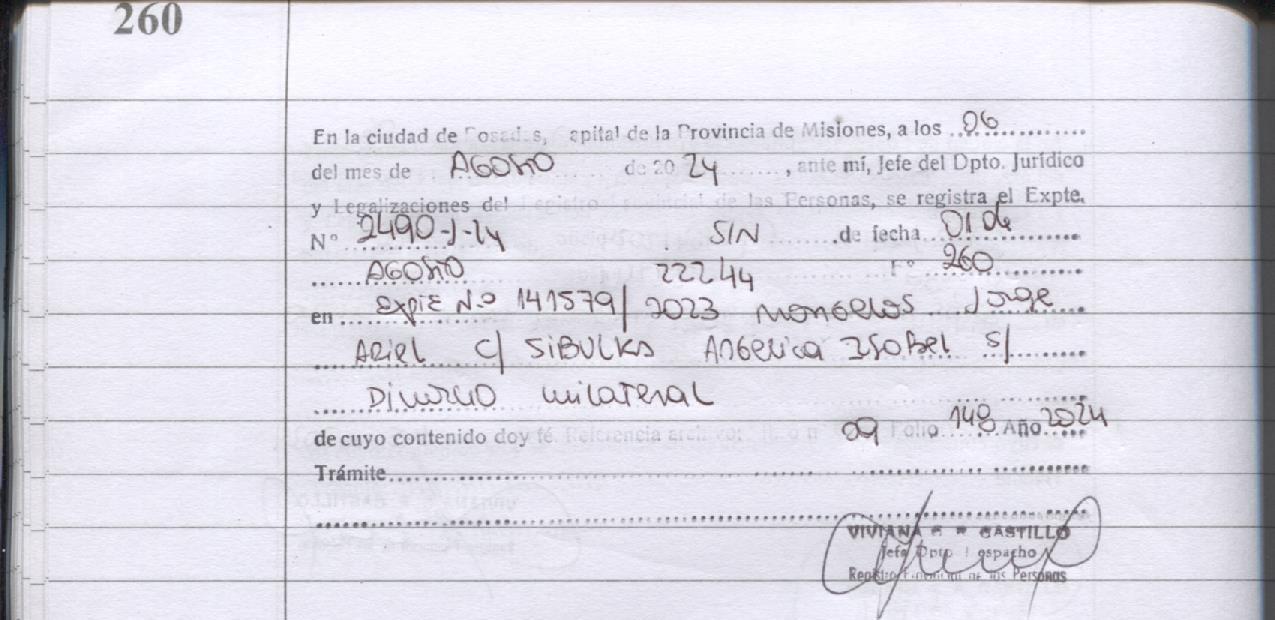 260
En la ciudad de Posadas, apital de la Provincia de Misiones, a los 06
del mes de AGOSTO de 2024, ante mí, Jefe del Dpto. Jurídico
y Legalizaciones del Registro Provincial de las Personas, se registra el Expte.
N° 2490-J-24 SIN de fecha 01 de
AGOSTO 22244 F° 260
en EXPTE N.o 141579/2023 MONGELOS Jorge
Ariel C/ SIBULKA Angelica Isabel S/
Divorcio unilateral
de cuyo contenido doy fé. Referencia archivo: 09 Folio 148 Año 2024
Trámite
VIVIANA CASTILLO
Jefe Dpto Despacho
Registro Provincial de las Personas